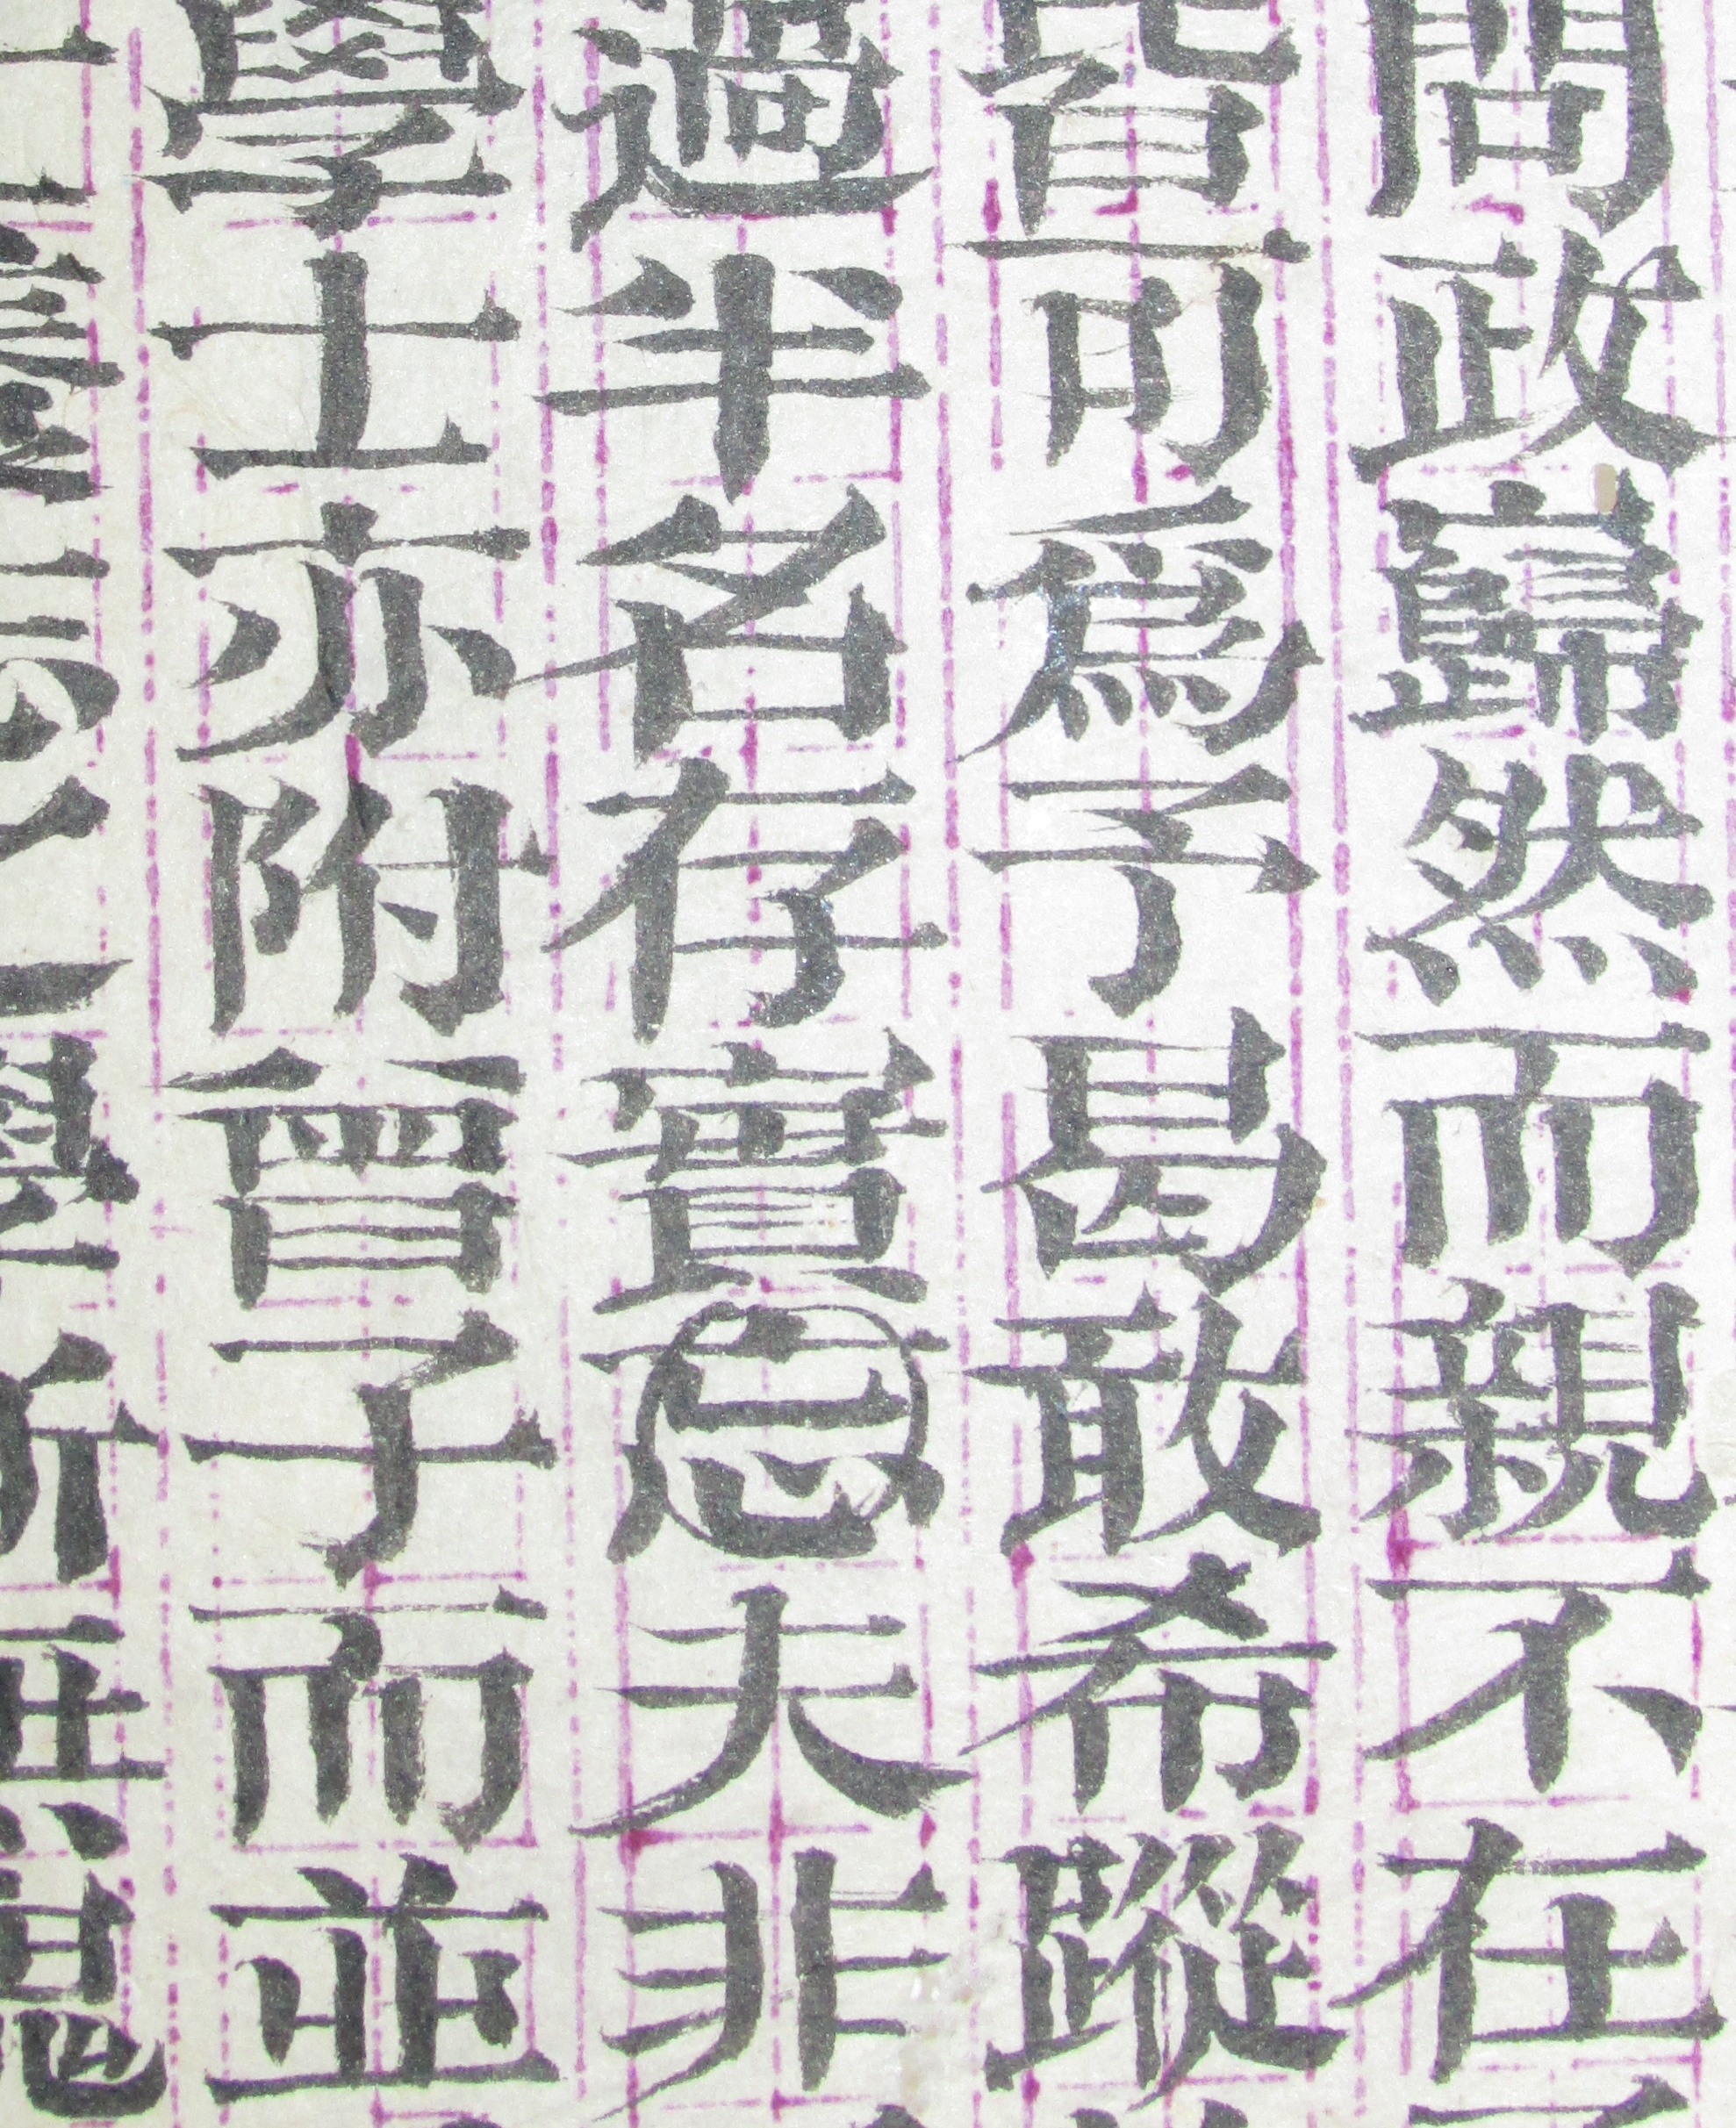 問政巋然而親不在
皆可爲予曷敢希蹤
過半名存實忘夫非
學士亦附曾子而並